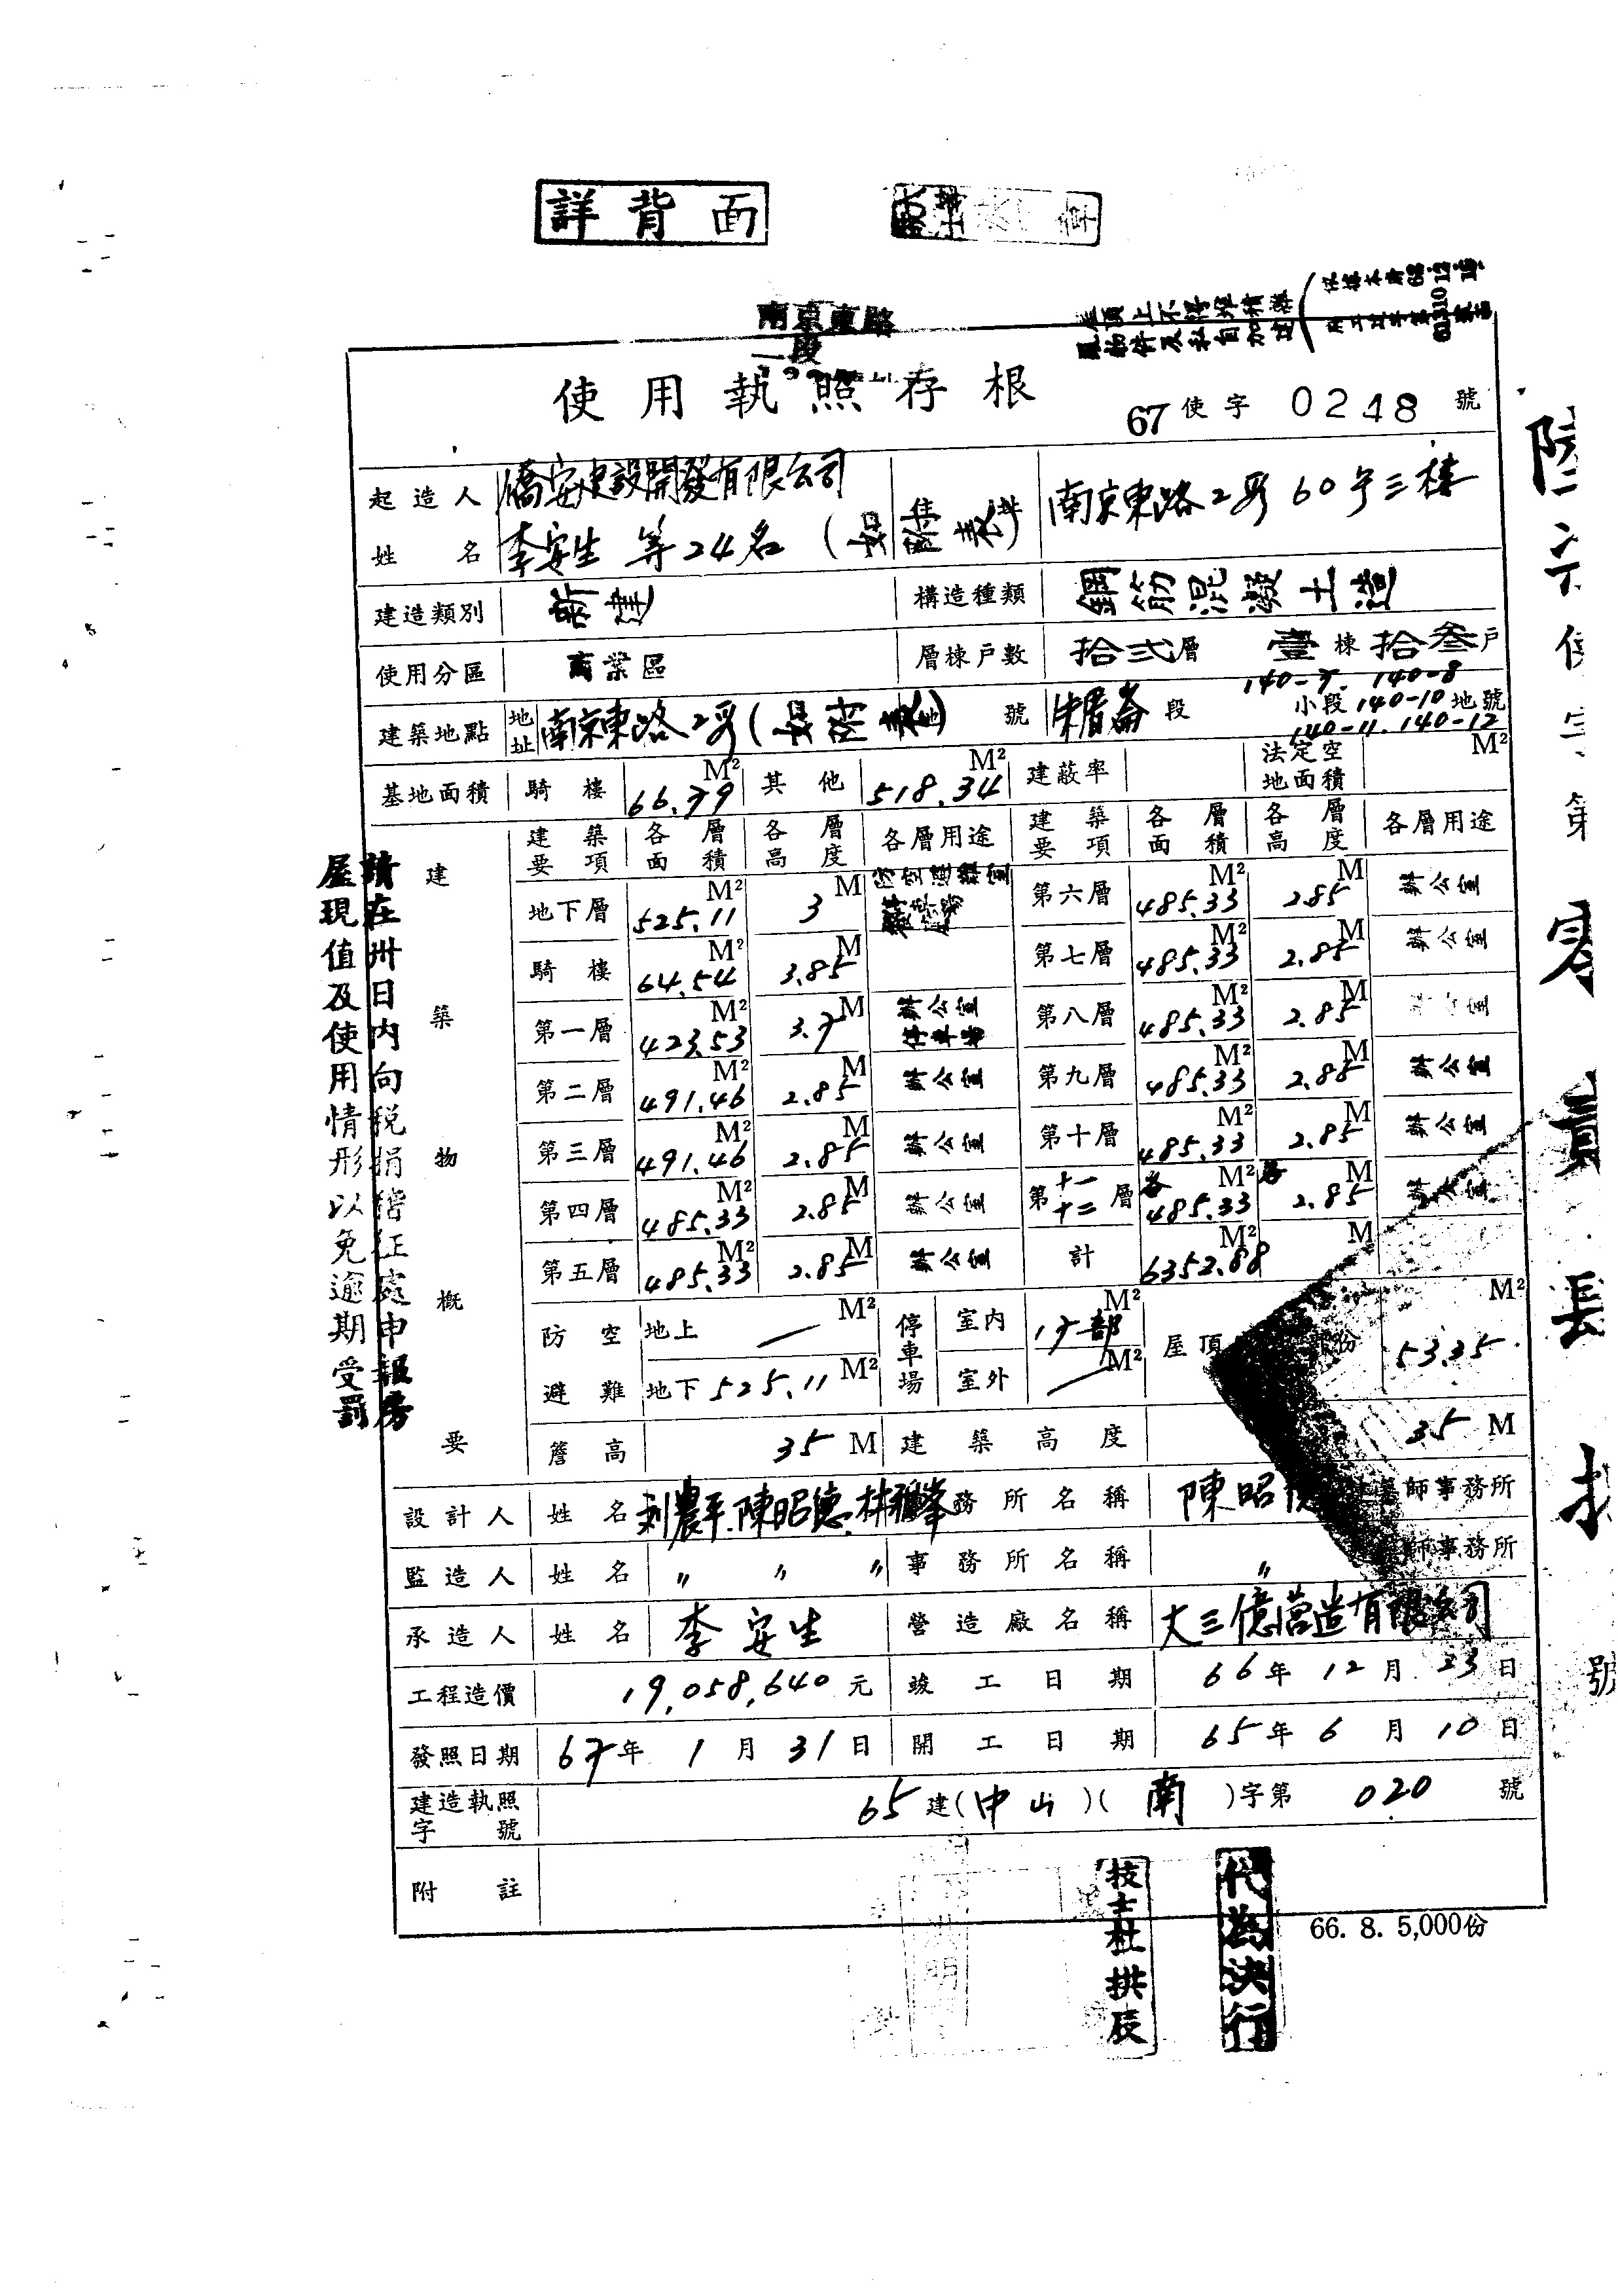 詳背面
南京東路
一段
屋頂上不得堆積雜
使用執照存根
67使字 0248 號
起造人姓名 僑安建設開發有限公司 李安生 等24名（如附表） 南京東路2段60号三樓
建造類別 新建 構造種類 鋼筋混凝土造
使用分區 商業區 層棟戶數 拾弍層 壹棟拾叁戶
建築地點 地址 南京東路2段 號 朱厝崙段 小段 140-7. 140-8 140-10 140-11. 140-12 地號
基地面積 騎樓 66.79 M² 其他 518.34 M² 建蔽率 法定空地面積 M²
建築物概要
建築要項 各層面積 各層高度 各層用途 建築要項 各層面積 各層高度 各層用途
地下層 525.11 M² 3 M 第六層 485.33 M² 2.85 M 辦公室
騎樓 64.54 M² 3.85 M 第七層 485.33 M² 2.85 M 辦公室
第一層 423.53 M² 3.7 M 辦公室 停車場 第八層 485.33 M² 2.85 M 辦公室
第二層 491.46 M² 2.85 M 辦公室 第九層 485.33 M² 2.85 M 辦公室
第三層 491.46 M² 2.85 M 辦公室 第十層 485.33 M² 2.85 M 辦公室
第四層 485.33 M² 2.85 M 辦公室 第十一十二層 各 485.33 M² 各 2.85 M 辦公室
第五層 485.33 M² 2.85 M 辦公室 計 6352.88 M² M
防空避難 地上 — M² 地下 525.11 M² 停車場 室內 17部 M² 室外 — M² 屋頂 份 53.35 M²
簷高 35 M 建築高度 35 M
設計人 姓名 劉農平.陳昭德.林 務所名稱 陳昭 師事務所
監造人 姓名 〃 〃 〃 事務所名稱 〃 師事務所
承造人 姓名 李安生 營造廠名稱 大三億營造有限公司
工程造價 19,058,640元 竣工日期 66年12月23日
發照日期 67年1月31日 開工日期 65年6月10日
建造執照字號 65建(中山)(南)字第 020 號
附註
66. 8. 5,000份
技士杜拱辰
代為決行
請在卅日內向稅捐稽征處申報房
屋現值及使用情形以免逾期受罰
陸六使字第零貳長捌號